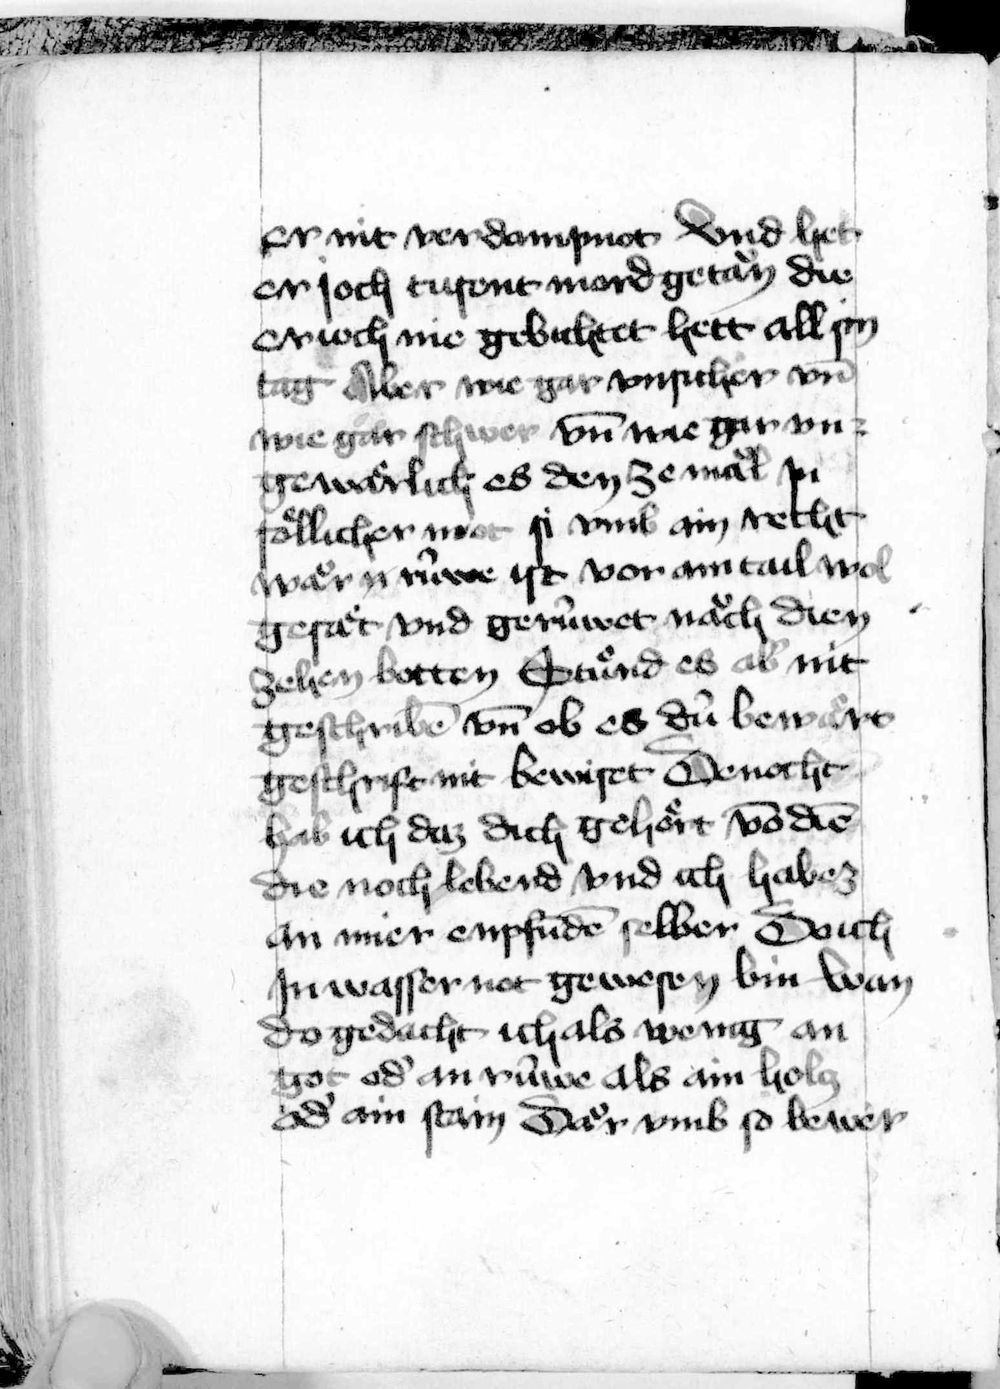 er nit verdampnot Vnd het
er joch tusent mord getaͤn die
er joch nie gebichtet hett all sin
tag Aber wie gar vnsicher vn̄
wie gar schwer vn̄ wie gar vn=
gewaͤrlich es den ze maͤl in
soͤllicher not si vmb ain recht
waͤrn rûwe ist vor ain tail wol
gesaͤt vnd gerûwet naͤch dien
zehen botten Stuͤnd es ab' nit
geschribē vn̄ ob es dû bewaͤrt
geschrift nit bewiset Denocht
hab ich daz dich gehoͤrt vō diē
die noch lebend vnd ich habez
an mier enpfūdē selber Do ich
In wasser not gewesen bin wan
do gedacht ich als wenig an
got od' an rûwe als ain holtz
od' ain stain Daͤr vmb so bewer